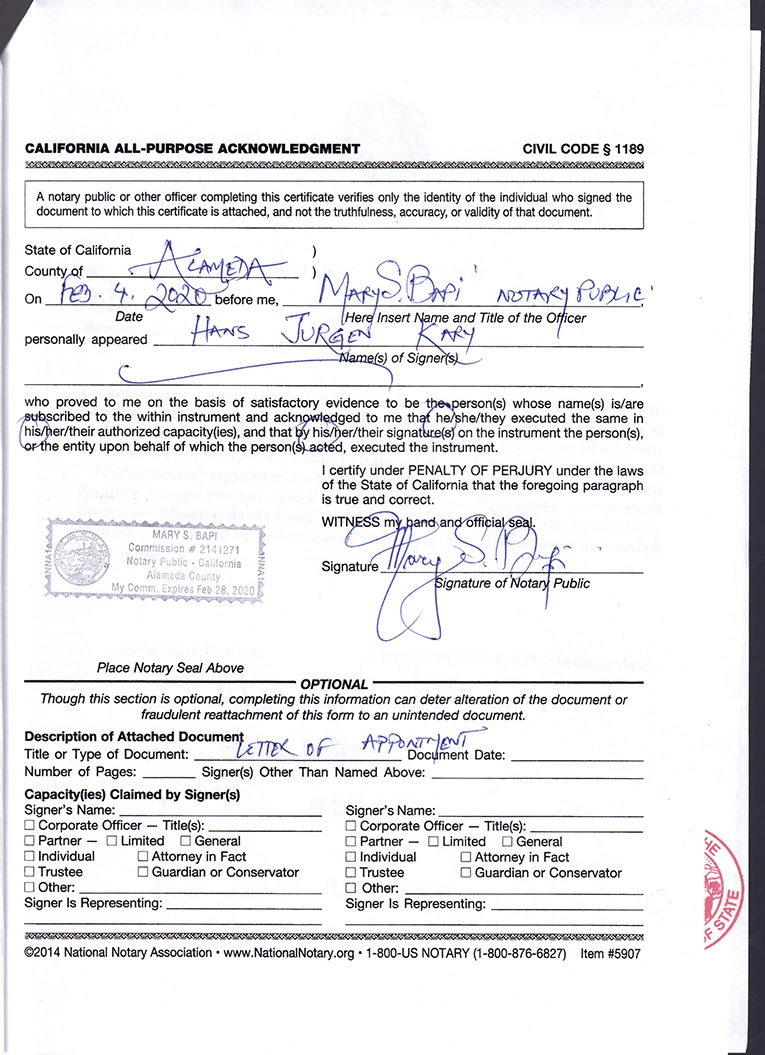 CALIFORNIA ALL-PURPOSE ACKNOWLEDGMENT CIVIL CODE § 1189
A notary public or other officer completing this certificate verifies only the identity of the individual who signed the
document to which this certificate is attached, and not the truthfulness, accuracy, or validity of that document.
State of California )
County of ALAMEDA )
On FEB. 4. 2020 before me, MARY S. BAPI NOTARY PUBLIC,
Date Here Insert Name and Title of the Officer
personally appeared HANS JURGEN KARY
Name(s) of Signer(s)
,
who proved to me on the basis of satisfactory evidence to be the person(s) whose name(s) is/are
subscribed to the within instrument and acknowledged to me that he/she/they executed the same in
his/her/their authorized capacity(ies), and that by his/her/their signature(s) on the instrument the person(s),
or the entity upon behalf of which the person(s) acted, executed the instrument.
I certify under PENALTY OF PERJURY under the laws
of the State of California that the foregoing paragraph
is true and correct.
WITNESS my hand and official seal.
MARY S. BAPI
Commission # 2141271
Notary Public - California
Alameda County
My Comm. Expires Feb 28, 2020
NNA1
NNA1
Signature Mary S. Bapi
Signature of Notary Public
Place Notary Seal Above
OPTIONAL
Though this section is optional, completing this information can deter alteration of the document or
fraudulent reattachment of this form to an unintended document.
Description of Attached Document
Title or Type of Document: LETTER OF APPONTMENT Document Date:
Number of Pages: Signer(s) Other Than Named Above:
Capacity(ies) Claimed by Signer(s)
Signer's Name: Signer's Name:
☐ Corporate Officer — Title(s): ☐ Corporate Officer — Title(s):
☐ Partner — ☐ Limited ☐ General ☐ Partner — ☐ Limited ☐ General
☐ Individual ☐ Attorney in Fact ☐ Individual ☐ Attorney in Fact
☐ Trustee ☐ Guardian or Conservator ☐ Trustee ☐ Guardian or Conservator
☐ Other: ☐ Other:
Signer Is Representing: Signer Is Representing:
THE
OF STATE
©2014 National Notary Association • www.NationalNotary.org • 1-800-US NOTARY (1-800-876-6827) Item #5907